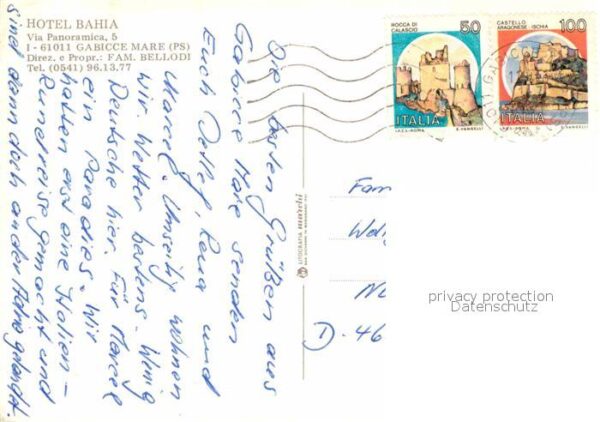 HOTEL BAHIA
Via Panoramica, 5
I - 61011 GABICCE MARE (PS)
Direz. e Propr.: FAM. BELLODI
Tel. (0541) 96.13.77
Die besten Grüßen aus
Gabicce Mare senden
Euch Detlef, Rena und
Marcel. Umseitig wohnen
wir. Wetter bestens. Wenig
Deutsche hier. Für Marcel
ein Paradies. Wir
hatten erst eine Italien-
Rundreise gemacht und
sind dann doch an der Adria gelandet.
LITOGRAFIA marchi
ROCCA DI
CALASCIO
50
ITALIA
I.P.Z.S.-ROMA
E. VANGELLI
CASTELLO
ARAGONESE - ISCHIA
100
ITALIA
I.P.Z.S.-ROMA
E. VANGELLI
Fam
D-46
privacy protection
Datenschutz